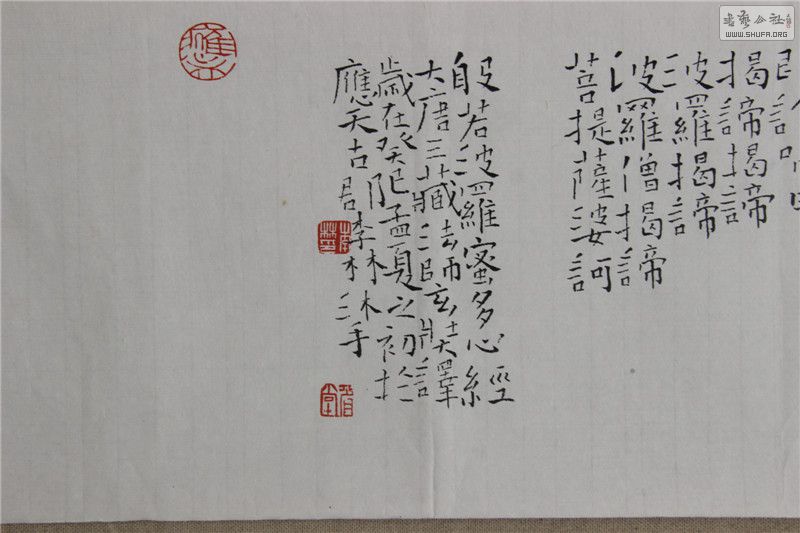 書藝公社
WWW.SHUFA.ORG
揭諦揭諦
波羅揭諦
波羅僧揭諦
菩提薩婆訶
般若波羅蜜多心經
大唐三藏法師玄奘譯
歲在癸巳孟夏之初於
應天古居李林沐手